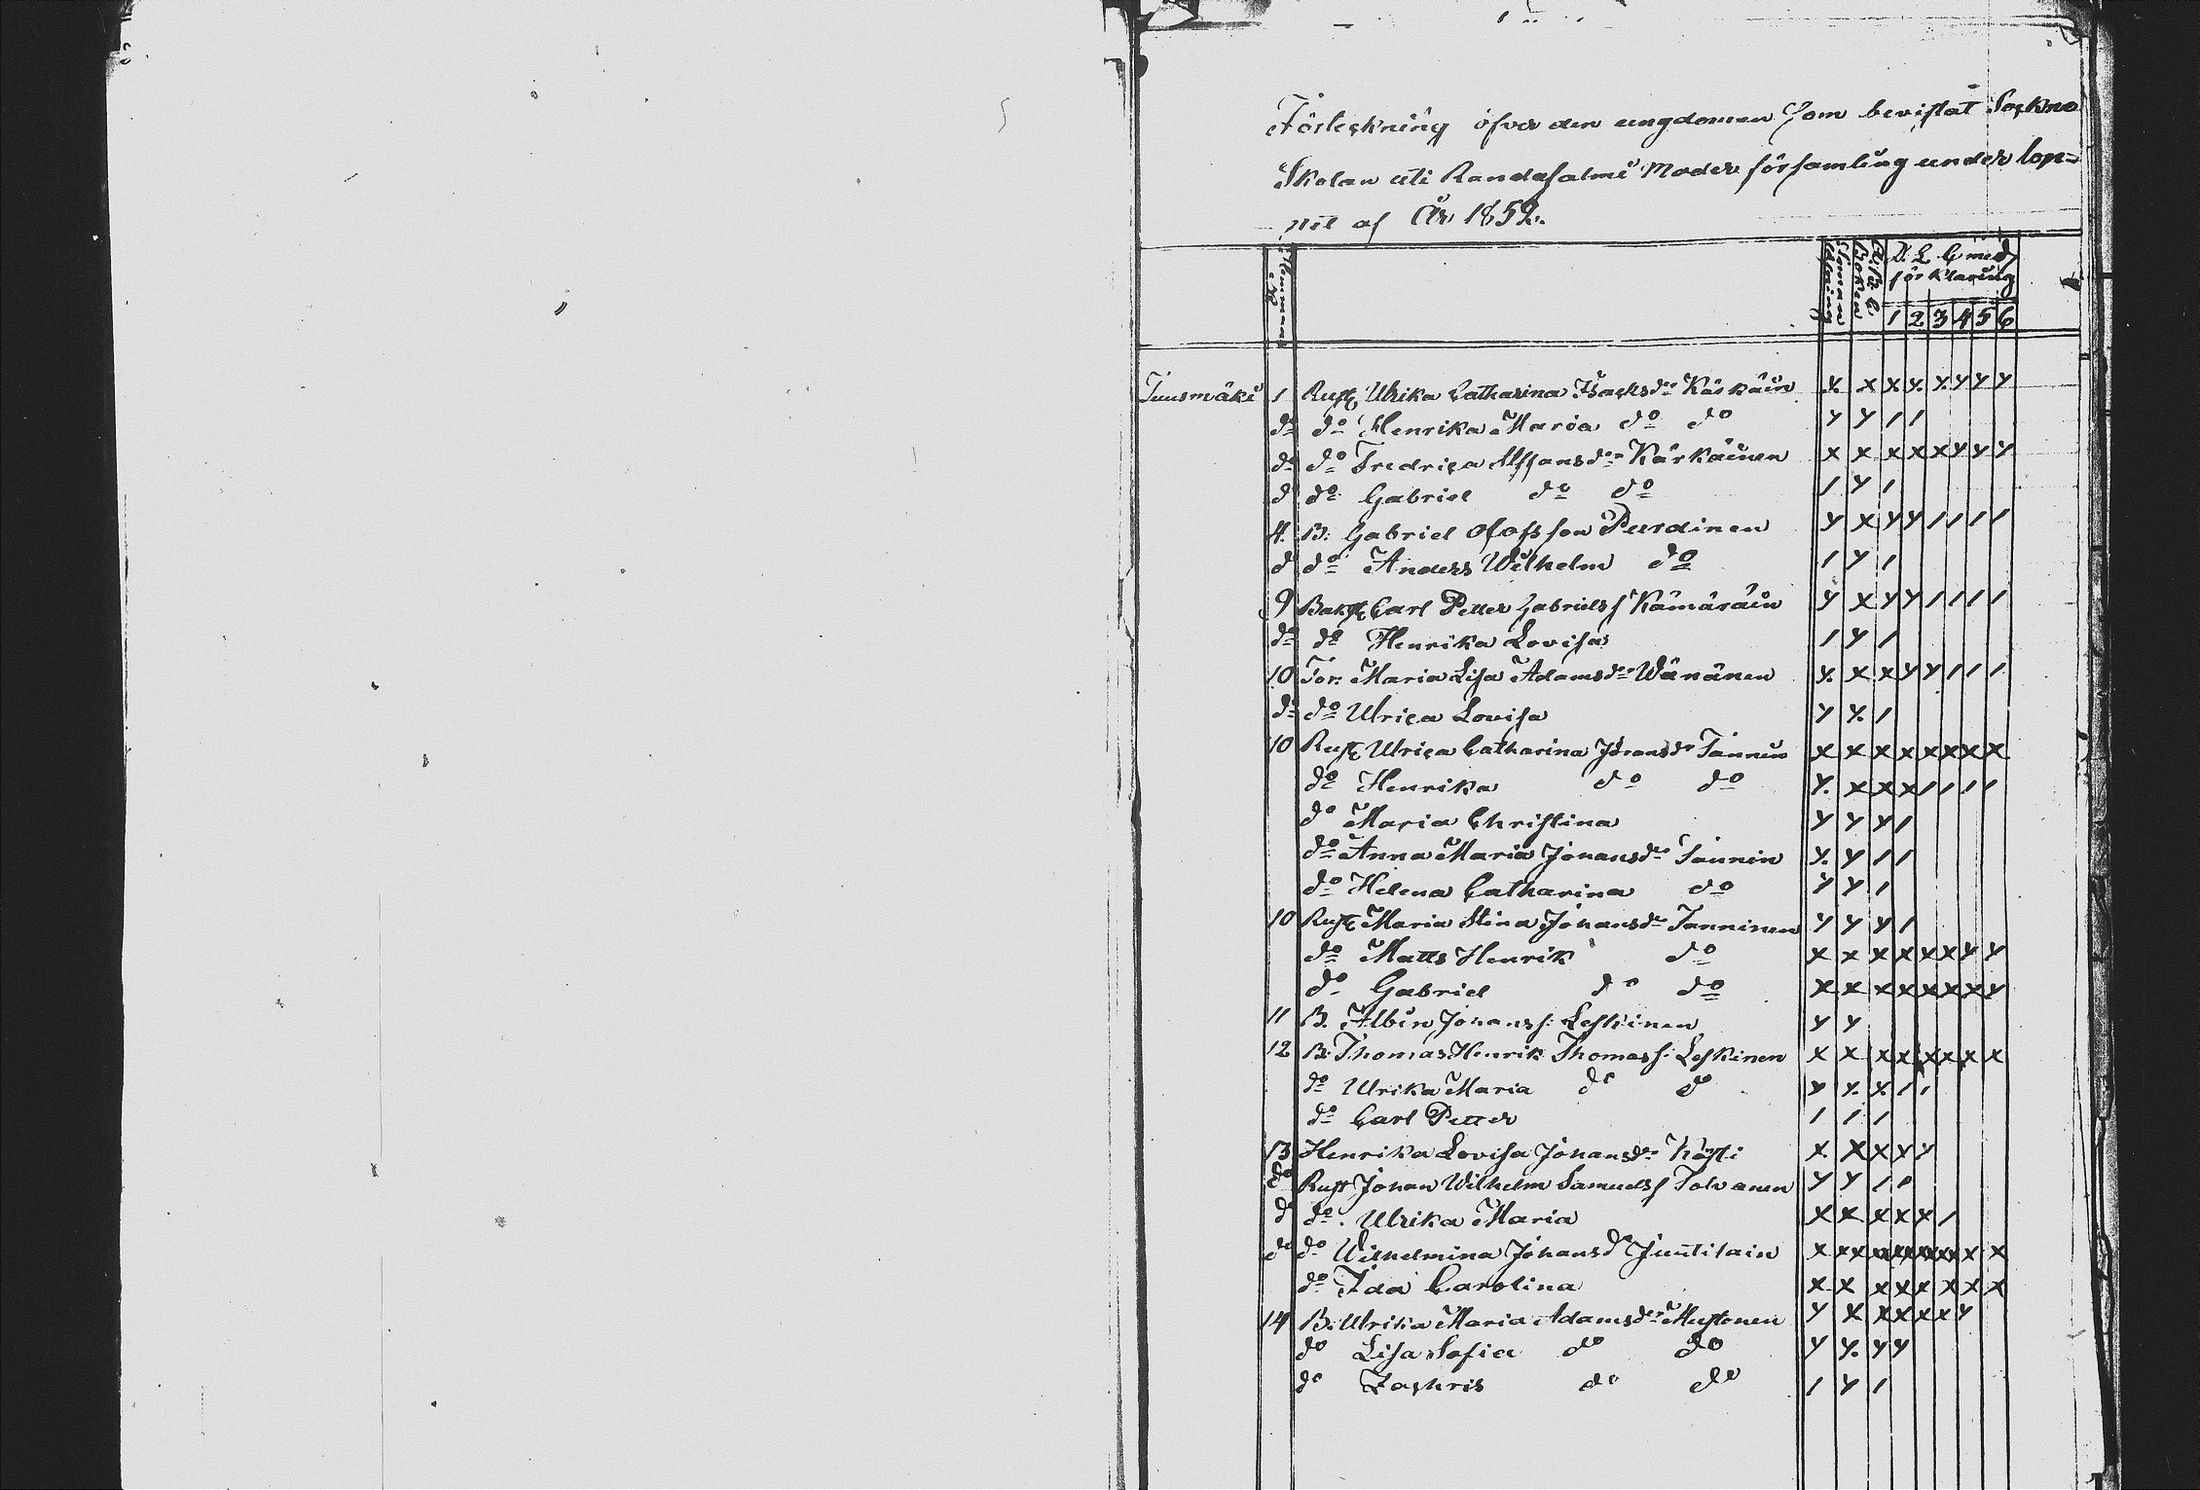 Förteckning öfver den ungdomen som bevistat Sockne
Skolan uti Randasalmi Moder församling under lop=
pet af År 1852.
Hemmans No
Innan läsning
A. B. C. Boken
D: L. C med
förklaring
1 2 3 4 5 6
Tuusmäki 1 Rust Ulrika Catharina Isacksdr Kärkäin x x x y y y y y
do do Henrika Maria do do y y / /
do do Fredrica Staffansdr Kärkäinen x x x x x y y y
d do Gabriel do do / y /
4. B: Gabriel Olofsson Purdinen y x y y / / / /
d do Anders Wilhelm do / y /
9 Bakst Carl Petter Gabrielss Kämäräin y x y y / / / /
do do Henrika Lovisa / y /
10 Tor: Maria Lisa Adamsdr Wänänen y x x y y / / /
do do Ulrica Lovisa y y /
10 Rust Ulrica Catharina Johansdr Tannin x x x x x x x x
do Henrika do do y x x x / / / /
do Maria Christina y y y /
do Anna Maria Johansdr Tannin y y / /
do Helena Catharina do y y /
10 Rust Maria Stina Johansdr Tanninen y y y /
do Matts Henrik do x x x x x x y y
do Gabriel do do x x x x x x x y
11 B. Albin Johanss: Leskinen y y
12 B: Thomas Henrik Thomass: Leskinen x x x x x x x x
do Ulrika Maria do do y y x / /
do Carl Petter / / /
13 Henrika Lovisa Johansdr Köysti x x x x y
do Rust Johan Wilhelm Samuelss Tolvanen y y / /
d do Ulrika Maria x x x x x /
do do Wilhelmina Johansdr Juutilain x x x x x x x x
do Ida Carolina x x x x x x x x
14 B: Ulrika Maria Adamsdr Mustonen y x x x x x y
do Lisa Sofia do do y y y y
do Zachris do do / y /